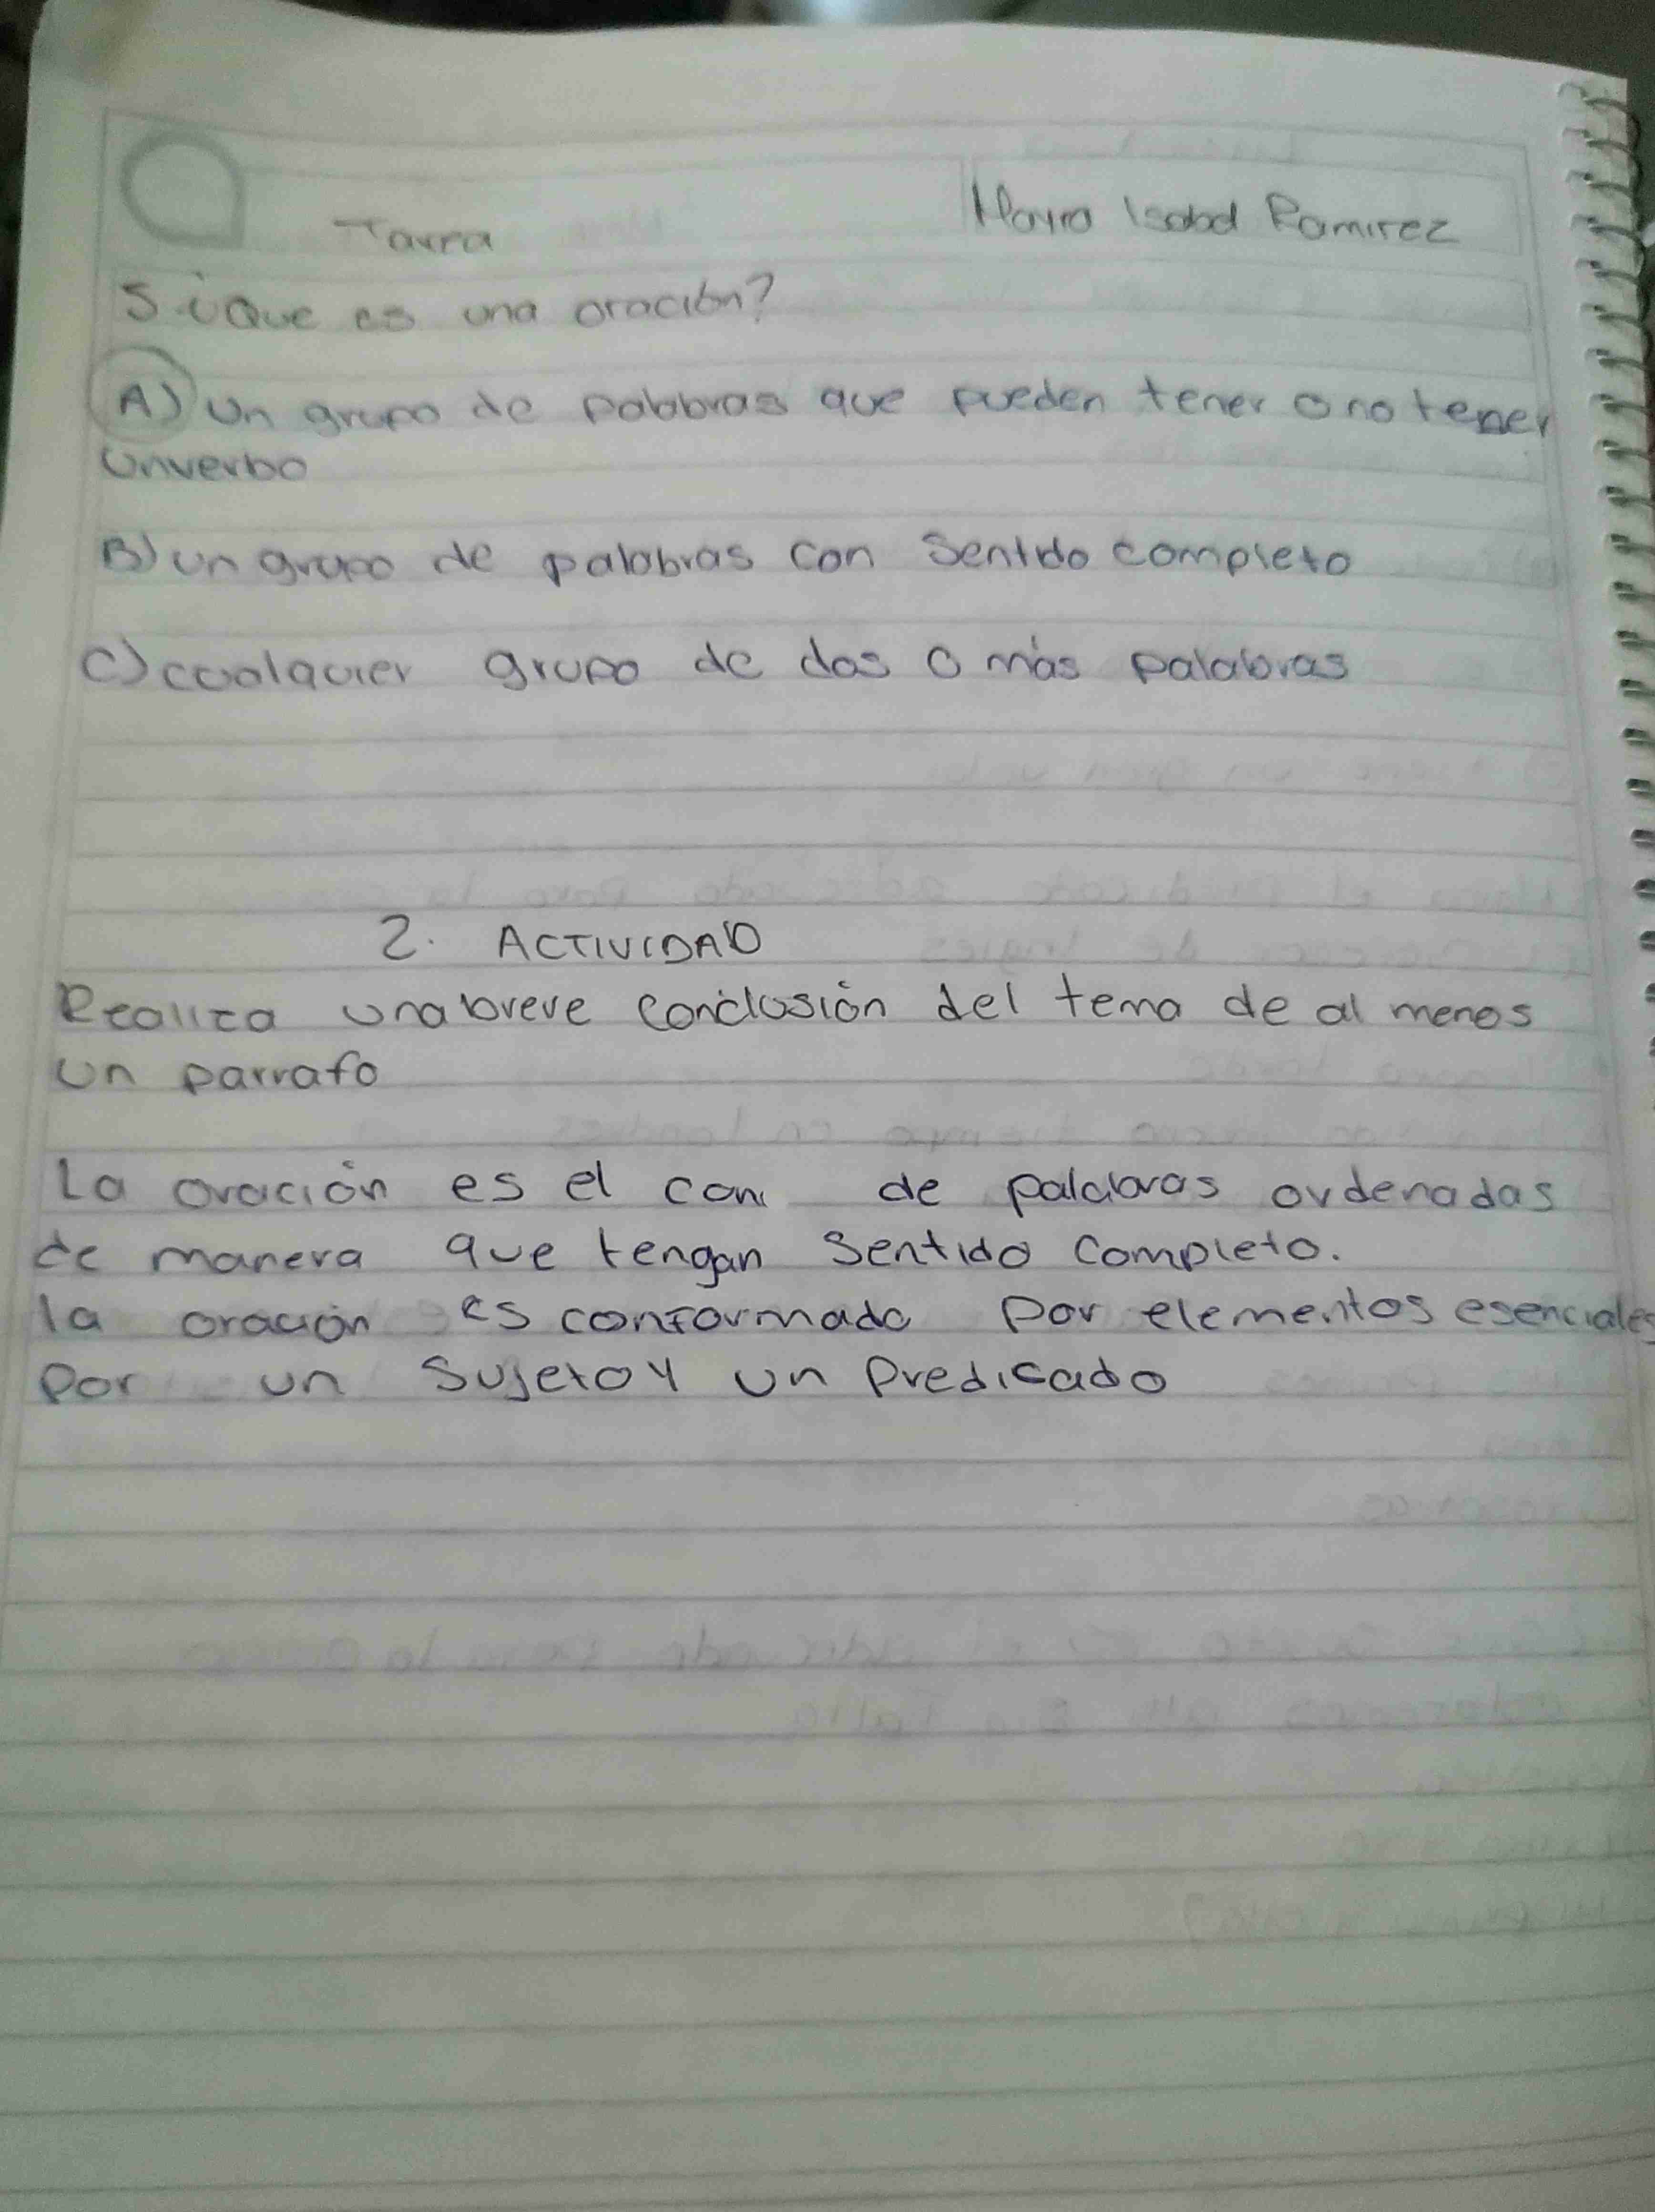 Tarea
Mayra Isabel Ramirez
5. ¿Que es una oración?
A) Un grupo de palabras que pueden tener o no tener
un verbo
B) un grupo de palabras con sentido completo
C) cualquier grupo de dos o más palabras
2. ACTIVIDAD
Realiza una breve conclusión del tema de al menos
un parrafo
La oración es el con de palabras ordenadas
de manera que tengan sentido completo.
la oración es conformada por elementos esenciales
por un sujeto y un predicado